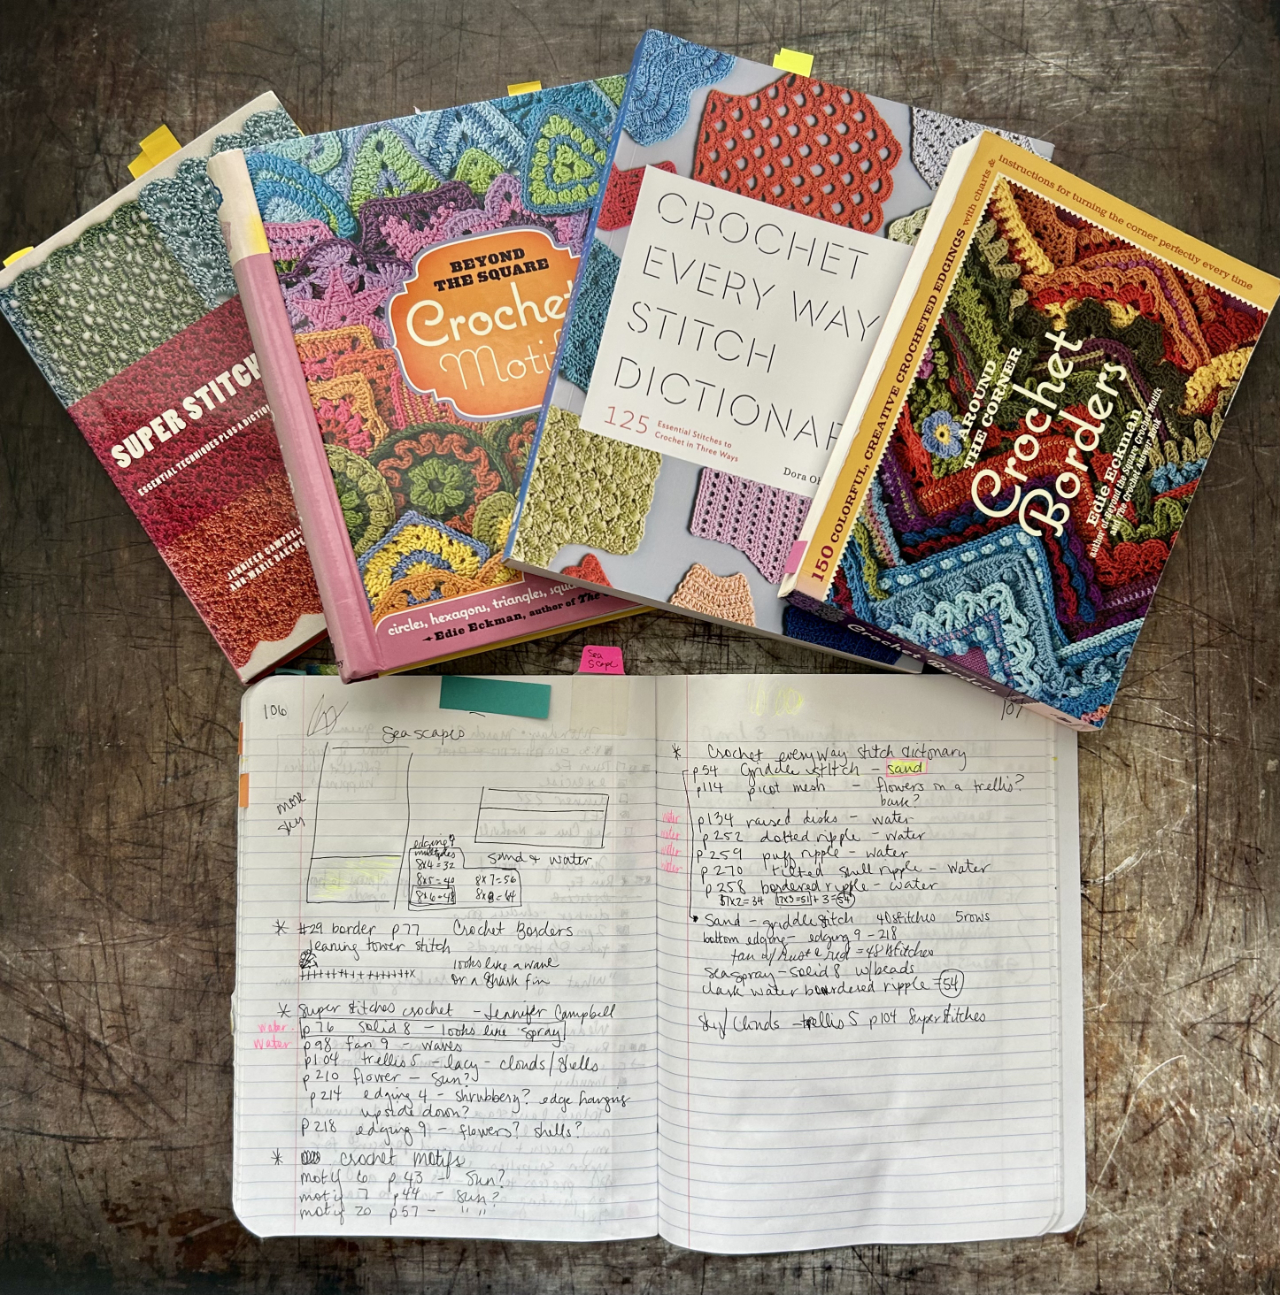 SUPER STITCH
ESSENTIAL TECHNIQUES PLUS A DICTION
JENNIFER CAMPB
ANN-MARIE BAKEWE
BEYOND
THE SQUARE
Crochet
Motif
circles, hexagons, triangles, squa
Edie Eckman, author of The
CROCHET
EVERY WAY
STITCH
DICTIONAR
125 Essential Stitches to
Crochet in Three Ways
Dora Oh
150 COLORFUL, CREATIVE CROCHETED EDGINGS with charts &
instructions for turning the corner perfectly every time
AROUND
THE CORNER
Crochet
Borders
Edie Eckman
author of Beyond the Square Crochet Motifs
and The Crochet Answer Book
Crochet Borders
Sea
Scape
106
Seascapes
more
sky
edging 9
multiples
8x4=32
8x5=40
8x6=48
8x7=56
8x8=64
sand & water
* #29 border p77 Crochet Borders
leaning tower stitch
looks like a wave
or a shark fin
* Super stitches crochet - Jennifer Campbell
water p76 Solid 8 - looks like spray
water p98 fan 9 - waves
p104 trellis 5 - lacy - clouds/shells
p210 flower - sun?
p214 edging 4 - shrubbery? edge hanging
upside down?
p218 edging 9 - flowers? shells?
* crochet motifs
motif 6 p43 - sun?
motif 7 p44 - sun?
motif 20 p57 - " "
107
* Crochet everyway stitch dictionary
p54 Griddle stitch - sand
p114 picot mesh - flowers on a trellis?
bark?
water p134 raised disks - water
water p252 dotted ripple - water
water p259 puff ripple - water
water p270 tilted shell ripple - water
p258 bordered ripple - water
17x2=34 17x3=51+3=54
Sand - griddle stitch 40 stitches 5 rows
bottom edging - edging 9 - 218
tan w/ rust & red = 48 stitches
sea spray - solid 8 w/beads
dark water bordered ripple = 54
Sky/Clouds - trellis 5 p104 Super Stitches